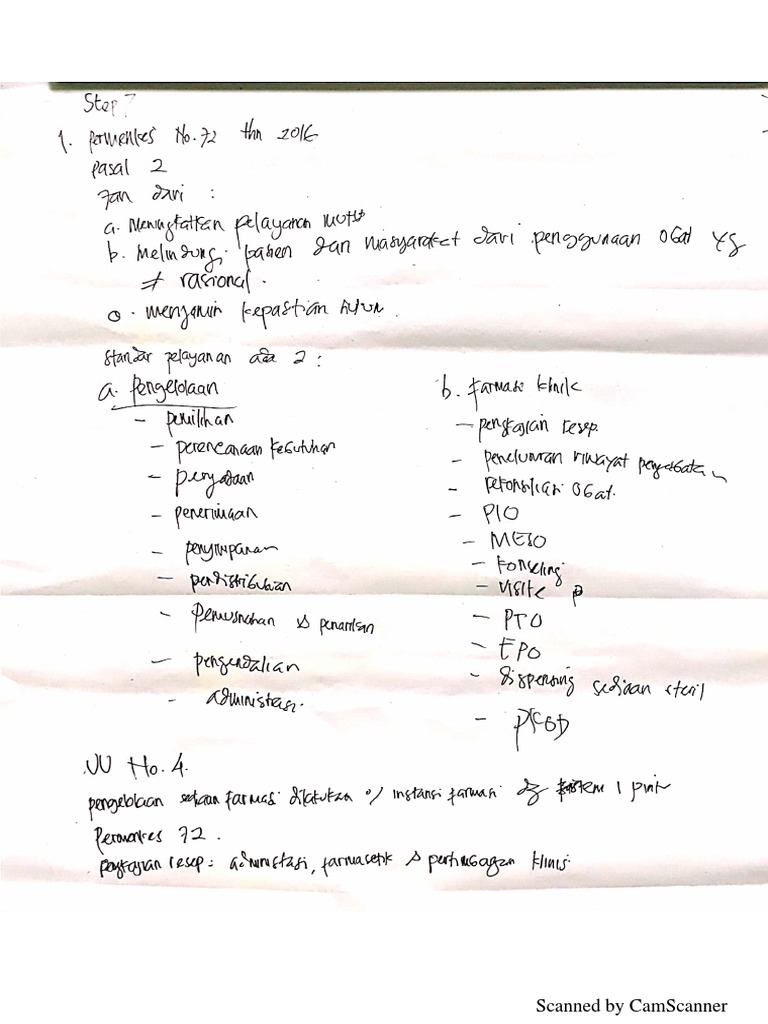 Step 7
1. permenkes No. 72 thn 2016
pasal 2
Jan dari :
a. Meningkatkan pelayanan mutu
b. Melindungi pasien dan masyarakat dari penggunaan obat yg
≠ rasional.
menjamin kepastian
standar pelayanan ada 2 :
a. Pengelolaan
- pemilihan
- perencanaan kebutuhan
- pengadaan
- penerimaan
- penyimpanan
- pendistribusian
- Pemusnahan & penarikan
- pengendalian
- administrasi.
b. farmasi klinik
- pengkajian resep
- penelusuran riwayat pengobatan
- rekonsiliasi obat.
- PIO
- MESO
- konseling
- visite
- PTO
- EPO
- dispensing sediaan steril
- PKOD
UU No. 4.
pengelolaan sediaan farmasi dilakukan o/ instansi farmasi dg sistem 1 pintu
Permenkes 72.
pengkajian resep : administasi, farmasetik & pertimbagan klinis
Scanned by CamScanner